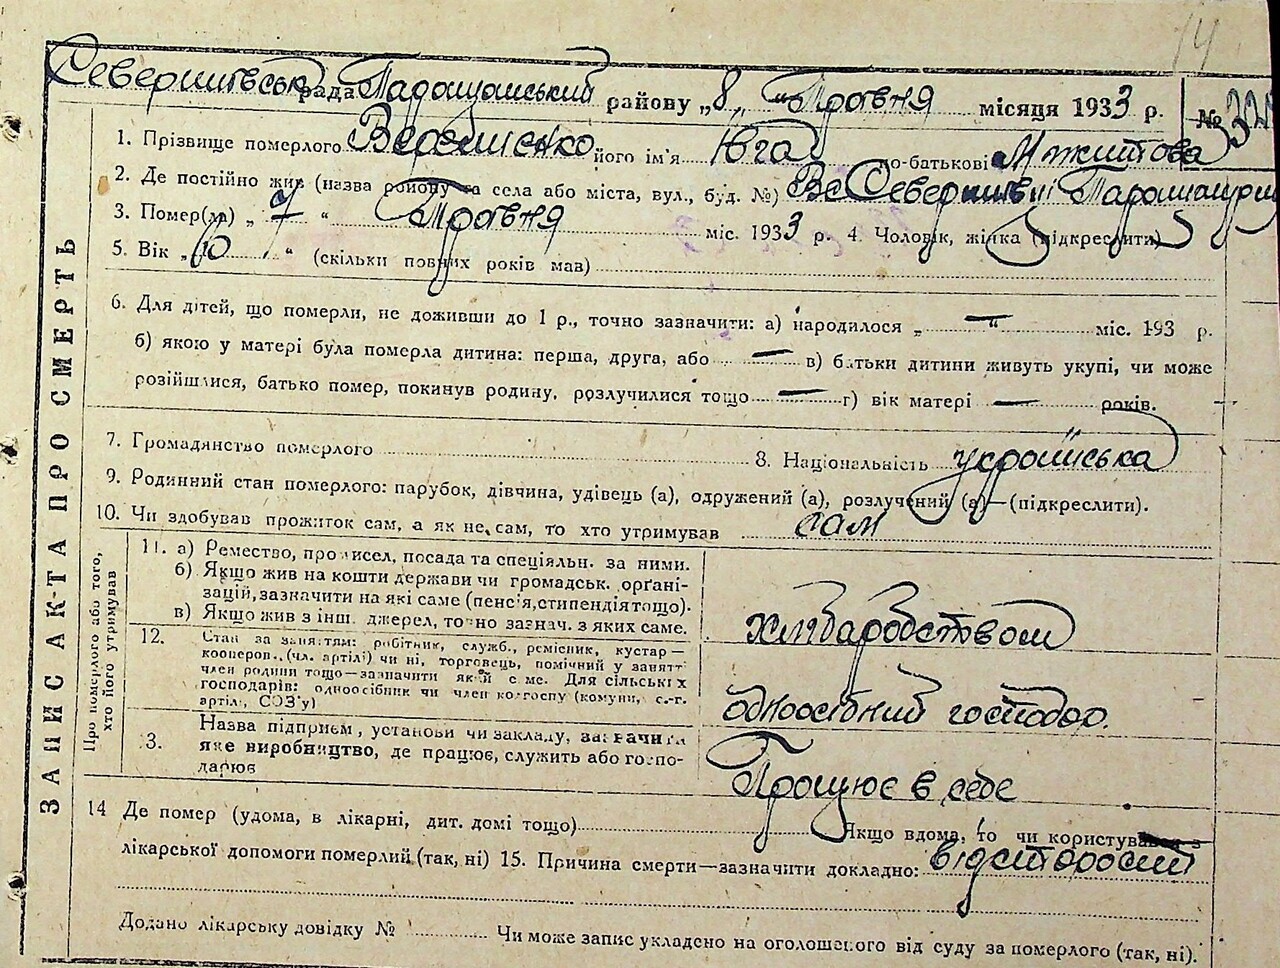 14
Северинівська рада Паращанський району „8„ “Травня місяця 1933 р. №
1. Прізвище померлого його ім'я Юга по-батькові
2. Де постійно жив (назва району та села або міста, вул., буд. №) Северинівці
3. Помер(ла) „ 7 “ Травня міс. 1933 р. 4. Чоловік, жінка (підкреслити)
5. Вік „ “ (скільки повних років мав)
6. Для дітей, що померли, не доживши до 1 р., точно зазначити: а) народилося „ — “ міс. 193 р.
б) якою у матері була померла дитина: перша, друга, або — в) батьки дитини живуть укупі, чи може
розійшлися, батько помер, покинув родину, розлучилися тощо — г) вік матері — років.
7. Громадянство померлого 8. Національність українська
9. Родинний стан померлого: парубок, дівчина, удівець (а), одружений (а), розлучений (а)—(підкреслити).
10. Чи здобував прожиток сам, а як не сам, то хто утримував сам
11. а) Ремество, промисел, посада та спеціяльн. за ними.
б) Якщо жив на кошти держави чи громадськ. орґані-
зацій, зазначити на які саме (пенсія, стипендія тощо).
в) Якщо жив з інш. джерел, точно зазнач. з яких саме.
хлібаробством
12. Стан за заняттям: робітник, служб., ремісник, кустар—
кооперов., (чл. артілі) чи ні, торговець, помічний у занятті
член родини тощо—зазначити який саме. Для сільських
господарів: одноосібник чи член колгоспу (комуни, с.-г.
артілі, СОЗ'у)
одноосібний господар.
3. Назва підприєм., установи чи закладу, зазначити
яке виробництво, де працює, служить або госпо-
дарює
Працює в себе
14 Де помер (удома, в лікарні, дит. домі тощо) Якщо вдома, то чи користувався з
лікарської допомоги померлий (так, ні) 15. Причина смерти—зазначити докладно: від старости
Додано лікарську довідку № Чи може запис укладено на оголошеного від суду за померлого (так, ні).
ЗАПИС АКТА ПРО СМЕРТЬ
Про померлого або того,
хто його утримував